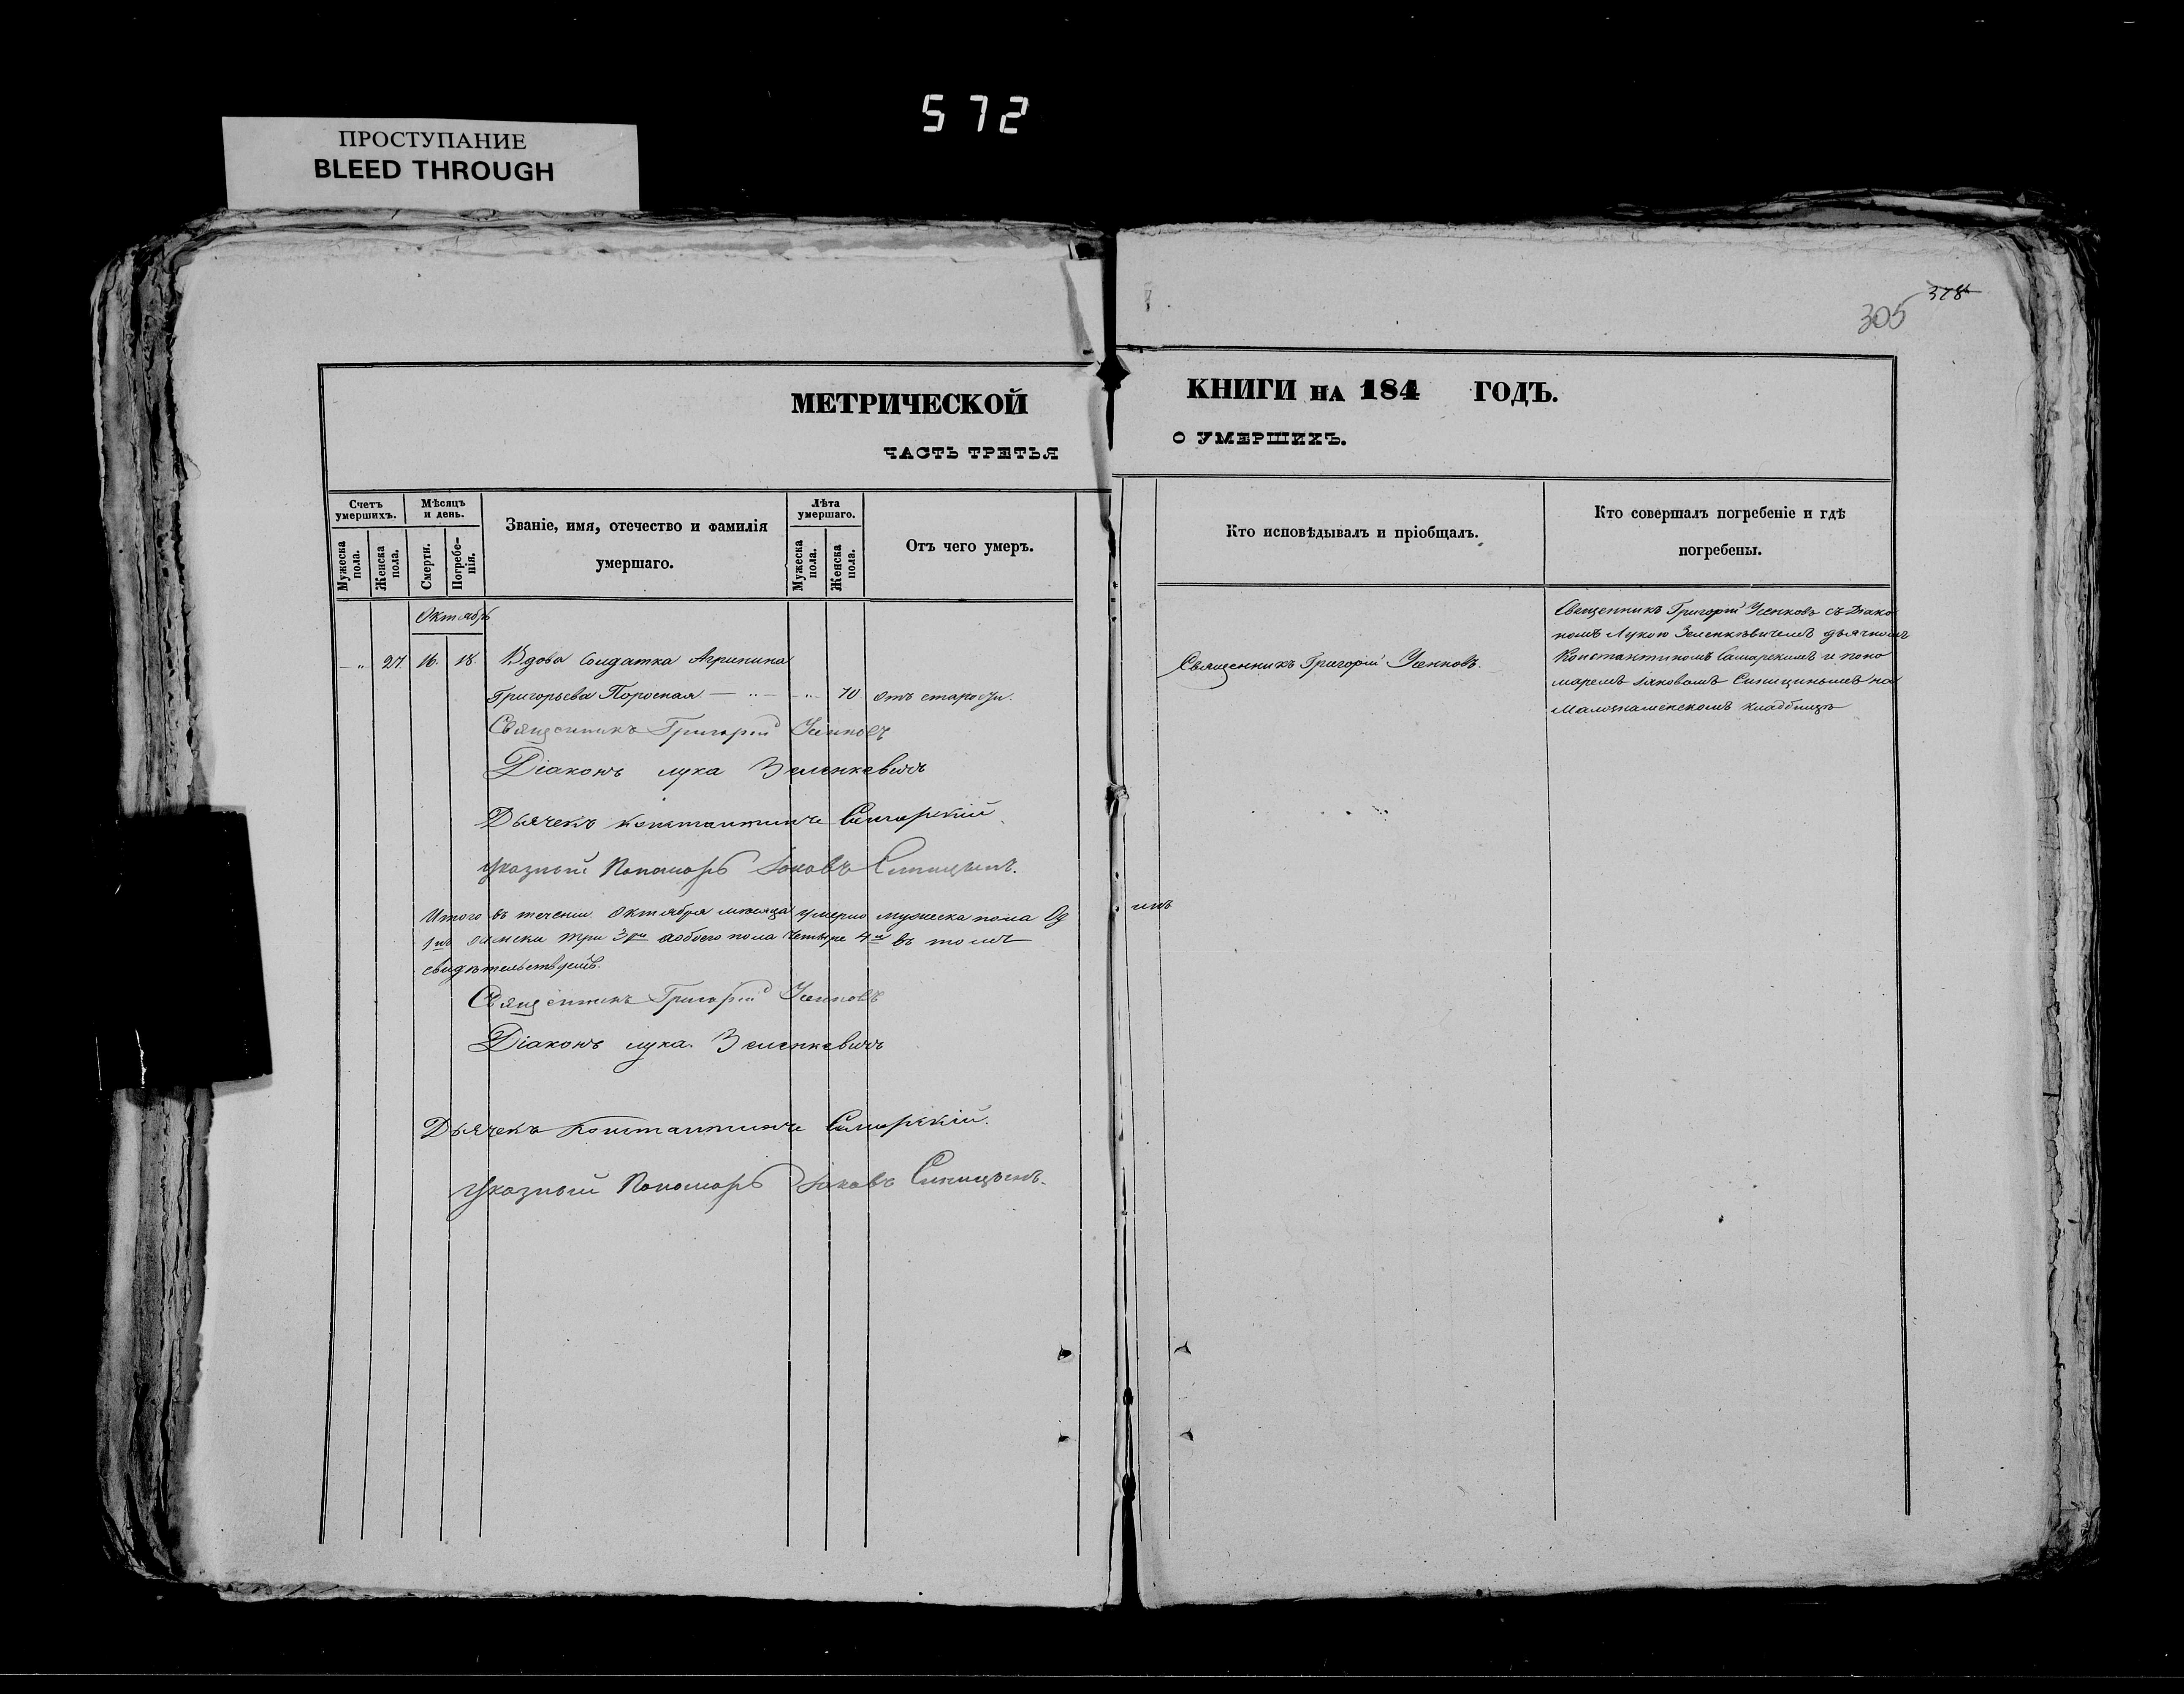 572
ПРОСТУПАНИЕ
BLEED THROUGH
378
305
МЕТРИЧЕСКОЙ КНИГИ НА 184 ГОДЪ.
ЧАСТЬ ТРЕТЬЯ О УМЕРШИХЪ.
Счетъ умершихъ.
Мужеска пола.
Женска пола.
Мѣсяцъ и день.
Смерти.
Погребе-нія.
Званіе, имя, отечество и фамилія
умершаго.
Лѣта умершаго.
Мужеска пола.
Женска пола.
Отъ чего умеръ.
Кто исповѣдывалъ и пріобщалъ.
Кто совершалъ погребеніе и гдѣ
погребены.
Октябрь
— „ 27. 16. 18. Вдова Солдатка Агрипина
Григорьева — „ — „ 70 отъ старости.
Священникъ Григорій Усенковъ.
Священникъ Григорій Усенковъ съ Діако
номъ Лукою Зеленкевичемъ дьячкомъ
Константиномъ Самарскимъ и поно
маремъ Іаковомъ Синицынымъ на
кладбищѣ
Священникъ Григорій Усенковъ
Діаконъ лука Зеленкевичь
Дьячекъ константинъ Самарскій
Указный Пономарь Іаковъ Синицынъ.
Итого въ течении Октября месяца умерло мужеска пола Од инъ
1нъ женска три 3ри аобоего пола четыре 4ре въ томъ
свидѣтельствуемъ.
Священникъ Григорій Усенковъ
Діаконъ лука. Зеленкевичь
Дьячекъ константинъ Самарскій.
Указный Пономарь Іаковъ Синицынъ.